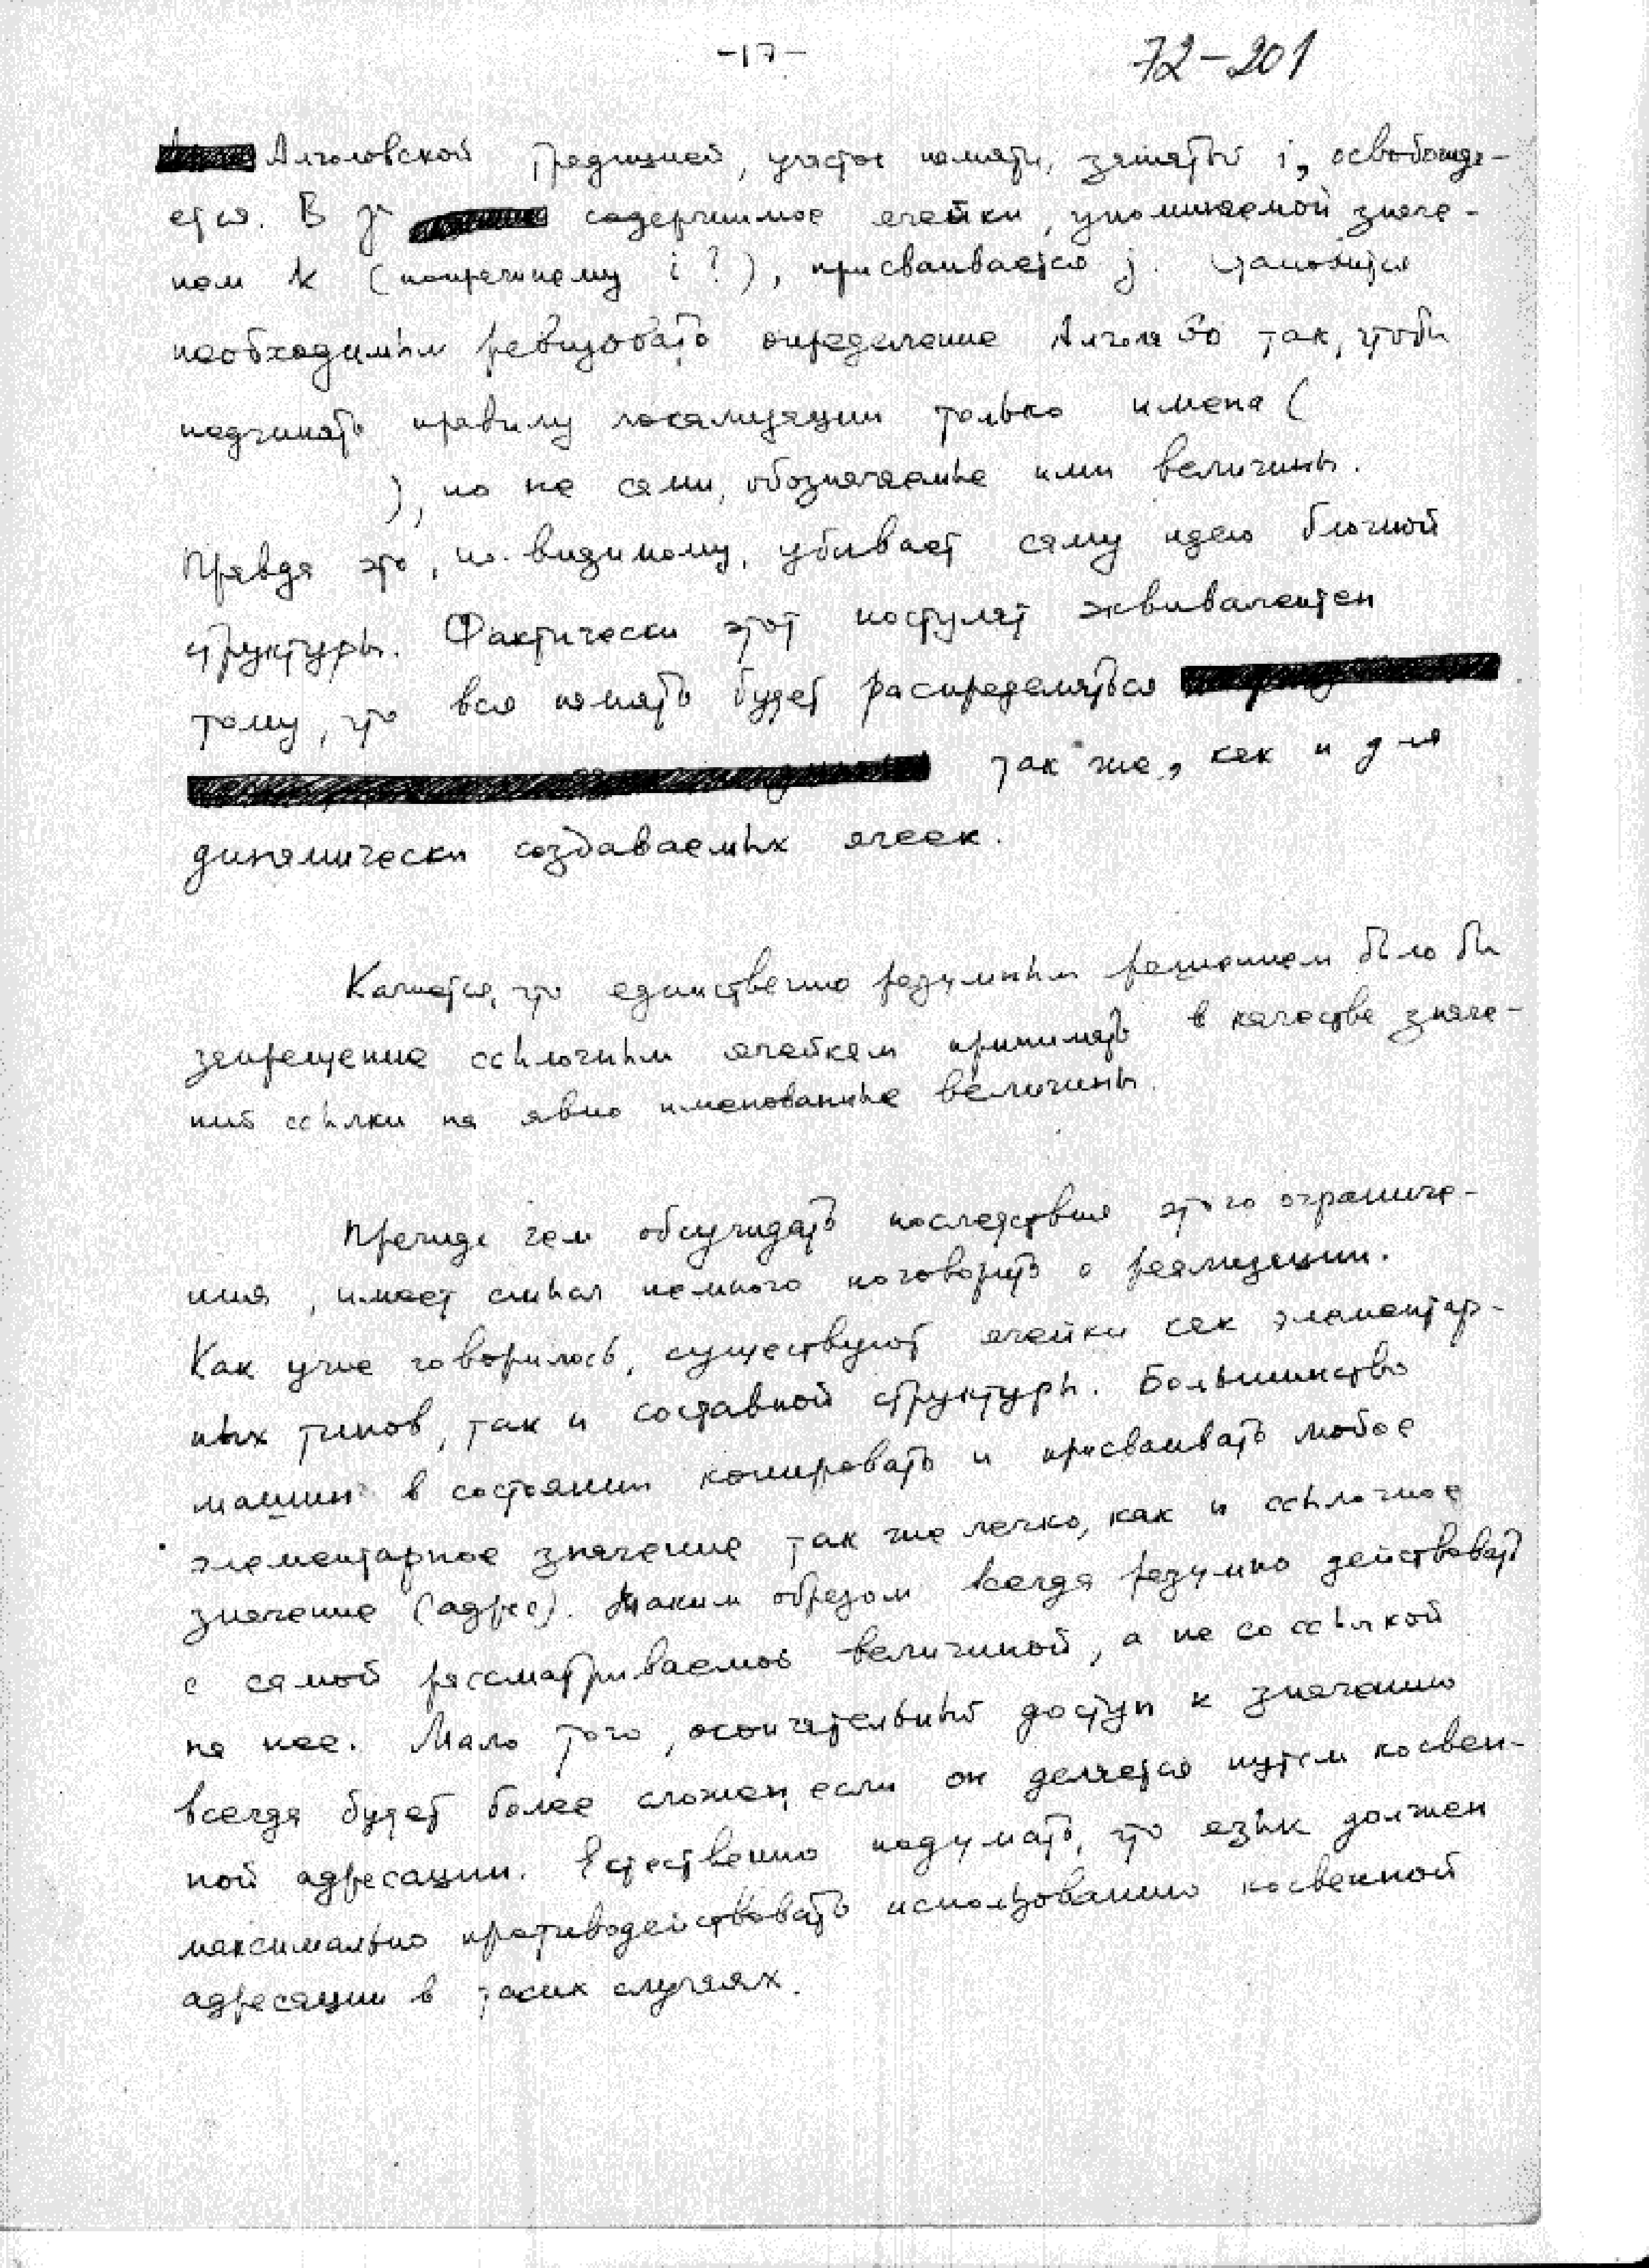 -17-
72-201
Алголовской традицией, участок памяти, занятый i, освобожда-
ется. В γ содержимое ячейки, упоминаемой значе-
нем k (попрежнему i?), присваивается j. Становится
необходимым ревизовать определение Алгола 60 так, чтобы
подчинять правилу локализации только имена (
), но не сами, обозначаемые ими величины.
Правда это, по-видимому, убивает саму идею блочной
структуры. Фактически этот постулат эквивалентен
тому, что вся память будет распределяться
так же, как и для
динамически создаваемых ячеек.
Кажется, что единственно разумным решением было бы
запрещение ссылочным ячейкам принимать в качестве значе-
ний ссылки на явно именованные величины.
Прежде чем обсуждать последствия этого ограниче-
ния, имеет смысл немного поговорить о реализации.
Как уже говорилось, существуют ячейки как элементар-
ных типов, так и составной структуры. Большинство
машин в состоянии копировать и присваивать любое
элементарное значение так же легко, как и ссылочное
значение (адрес). Таким образом всегда разумно действовать
с самой рассматриваемой величиной, а не со ссылкой
на нее. Мало того, окончательный доступ к значению
всегда будет более сложен, если он делается путем косвен-
ной адресации. Естественно подумать, что язык должен
максимально противодействовать использованию косвенной
адресации в таких случаях.